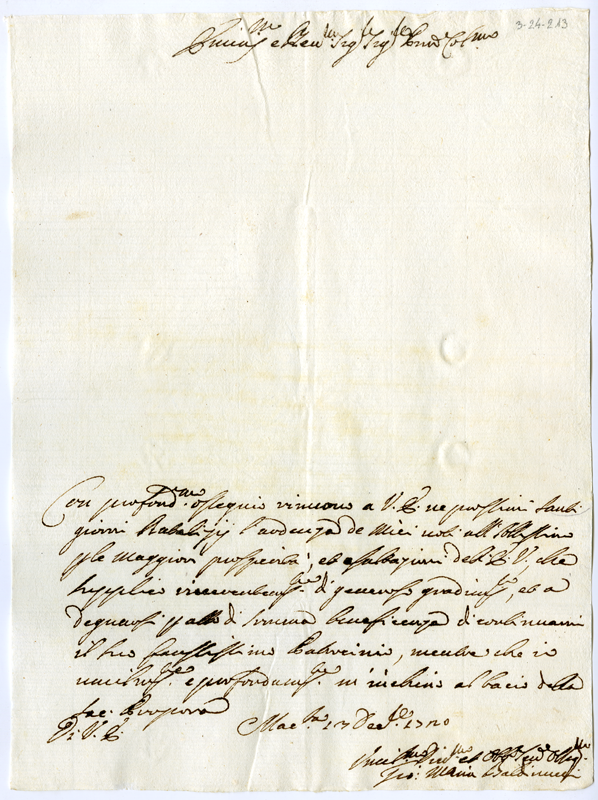 3-24-213
Em.mo e Rev.mo Sig.re Sig.re P.rone Col.mo
Con profond.mo ossequio rinuovo a V. E. ne prossimi Santi
giorni Natalizij l'ardenza de Miei voti all' Altissimo
p le maggiori prosperità, et esaltazioni dell' E. V. che
supplico riverentem.te di generoso gradim.to, et a
degnarsi p atto di somma beneficenza di continuarmi
il suo Patrocinio, mentre che io
umilm.te e profondam.te m' inchino al bacio della
Sac. Porpora
Di V. E. Mac.ta 17 Dec.e 1720
Umil.mo Dev.mo et Obl.mo
Gio: Maria Baldinucci